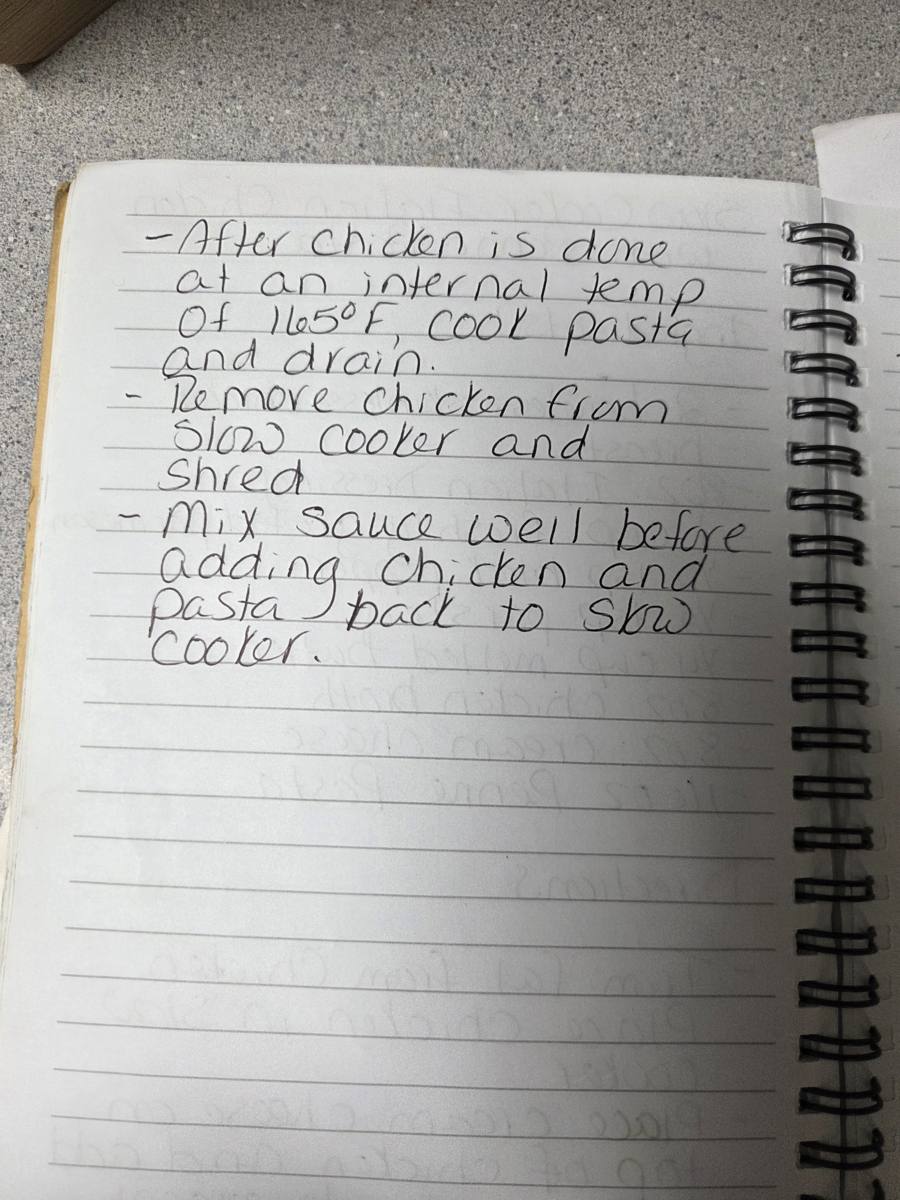 - After chicken is done
at an internal temp
of 165°F, cook pasta
and drain.
- Remove chicken from
slow cooker and
shred
- Mix sauce well before
adding chicken and
pasta back to slow
cooker.